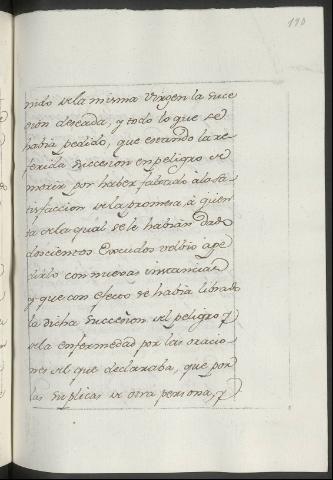 190
nido de la misma Virgen la suce
sion deseada, y todo lo que se
habia pedido, que estando la re
ferida succesion en peligro de
morir, por haber faltado á la sa
tisfaccion de la promesa, á quen
ta de la qual se le habian dado
doscientos Escudos volbio á pe
dirlo con nuevas instancias
y que con efecto se habia librado
la dicha succesion del peligro y
de la enfermedad por las oracio
nes del que declaraba, que por
las suplicas de otra persona, y